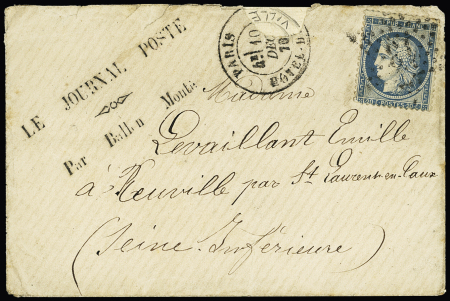 LE JOURNAL POSTE
Par Ballon Monté
PARIS
HOTEL-D-VILLE
10
DEC
70
Madame
Levaillant Emille
à Neuville par St Laurent-en-Caux
(Seine Inférieure)